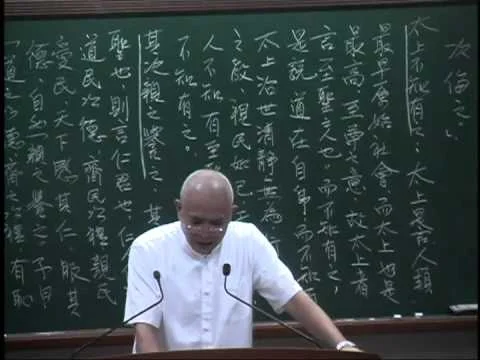 次侮之」
太上不知有之：太上是古人類
最早原始社會，而太上也是
最高至尊之意，故太上者
言至聖之也，而不知有之，
是說道在自身而不知
太上治世清靜無為
之般，視民如己
人不知有
不知有之。
其次親之譽之：其
聖也，則言仁君也，仁
道民以德，齊民以禮，親民
愛民，天下感其仁，服其
德，自然親之譽之，子曰
「道之以德，齊之以禮，有恥